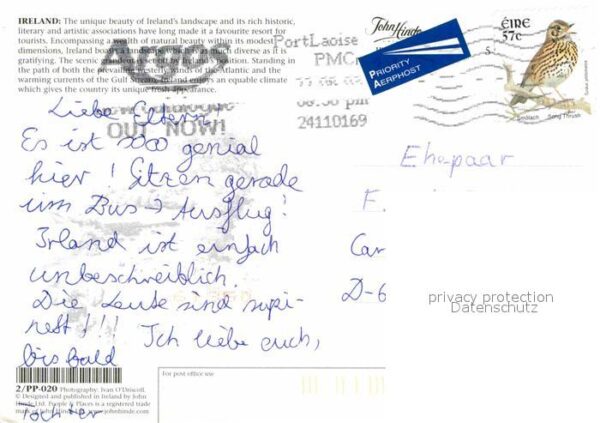 IRELAND: The unique beauty of Ireland's landscape and its rich historic,
literary and artistic associations have long made it a favourite resort for
tourists. Encompassing a wealth of natural beauty within its modest
dimensions, Ireland boasts a landscape which is as much diverse as it is
gratifying. The scenic position. Standing in
the path of both the prevailing winds of the Atlantic and the
warming currents of the Gulf Stream, Ireland enjoys an equable climate
which gives the country its unique fresh appearance.
Argos
new catalogue
OUT NOW!
PortLaoise
PMC
pm
24110169
John Hinde
PRIORITY
AERPHOST
5
ÉIRE
57c
Smólach Song Thrush
Liebe Eltern!
Es ist sooo genial
hier! Sitzen gerade
im Bus → Ausflug!
Irland ist einfach
unbeschreiblich.
Die Leute sind
!!! Ich liebe euch,
bis bald
Tochter
Ehepaar
F.
Car
D-6
privacy protection
Datenschutz
For post office use
2/PP-020 Photography: Ivan O'Driscoll.
© Designed and published in Ireland by John
Hinde Ltd. People & Places is a registered trade
mark of John Hinde Ltd. www.johnhinde.com